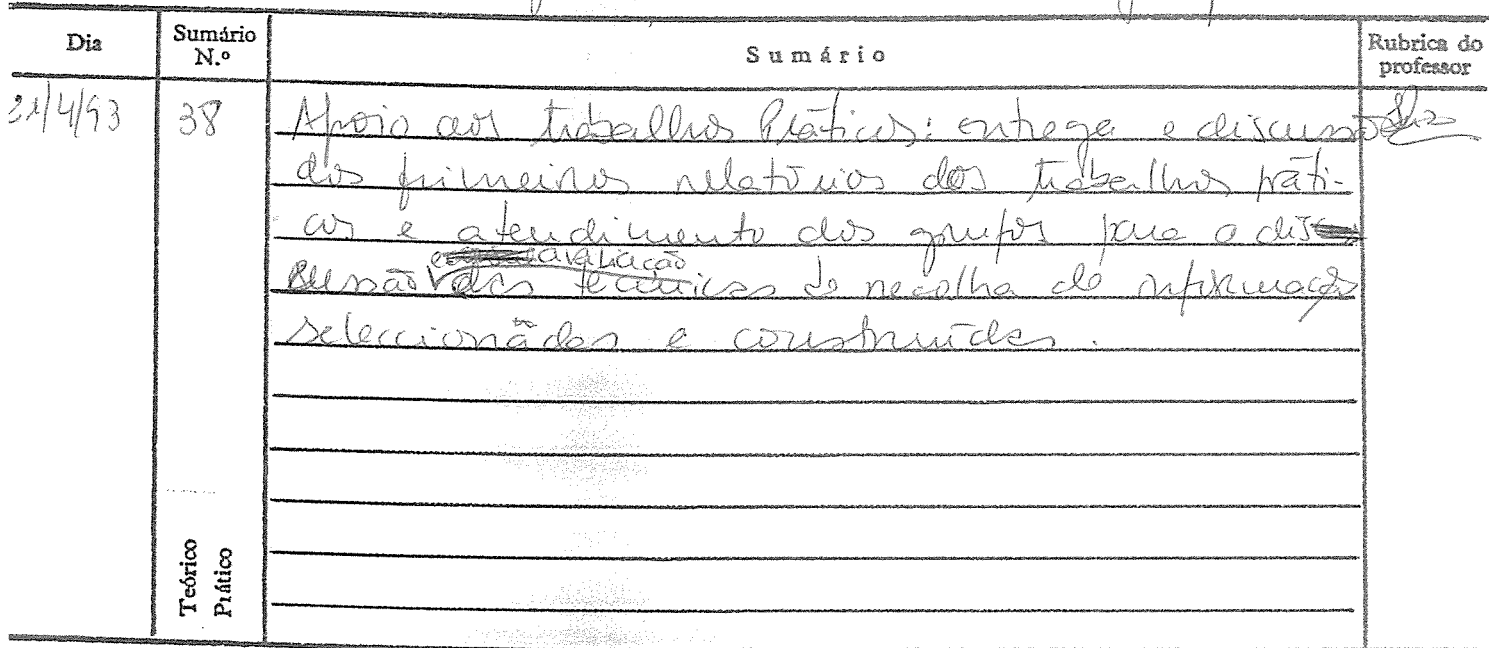 Dia Sumário N.º Sumário Rubrica do professor
21/4/93 38 Apoio aos trabalhos Práticos: entrega e discussão
dos primeiros relatórios dos trabalhos práti-
cos e atendimento dos grupos para a dis
cussão avaliação das técnicas de recolha de informação
seleccionadas e construídas.
Teórico
Prático